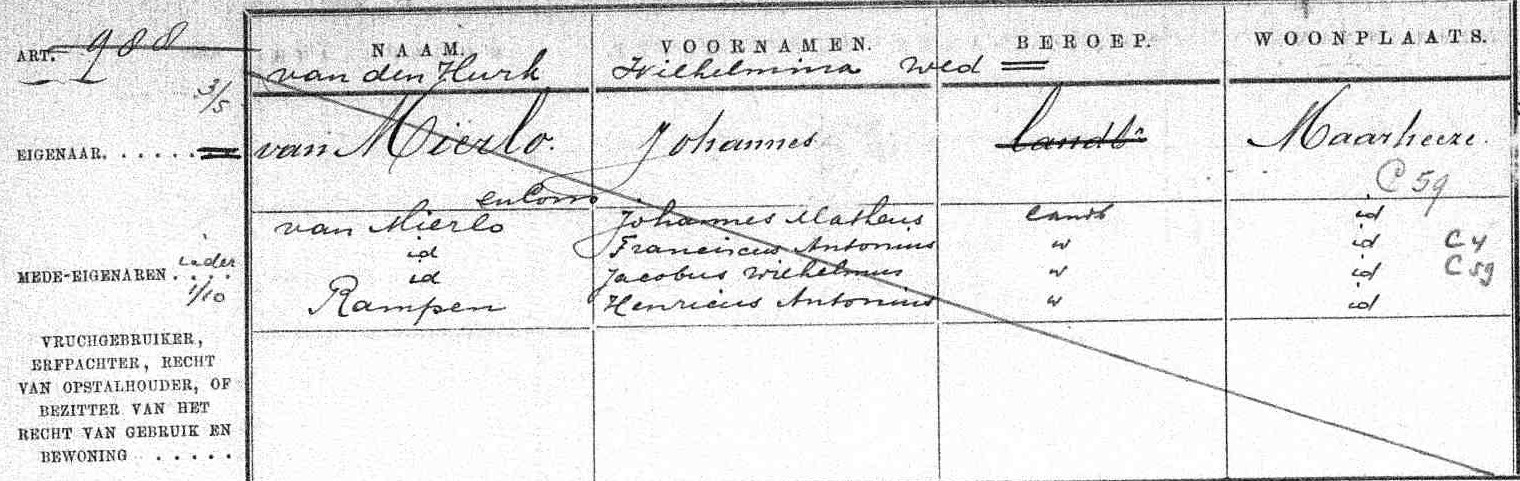 ART. 988
NAAM. VOORNAMEN. BEROEP. WOONPLAATS.
van den Hurk Wilhelmina Wed =
3/5
EIGENAAR. . . . . . van Mierlo. Johannes landbr Maarheeze.
C 59
en Cons
van Mierlo Johannes Matheus landb id
id Franciscus Antonius " id C 4
ieder
MEDE-EIGENAREN . . . . id Jacobus Wilhelmus " id C 59
1/10
Rampen Henricus Antonius " id
VRUCHGEBRUIKER,
ERFPACHTER, RECHT
VAN OPSTALHOUDER, OF
BEZITTER VAN HET
RECHT VAN GEBRUIK EN
BEWONING . . . . .